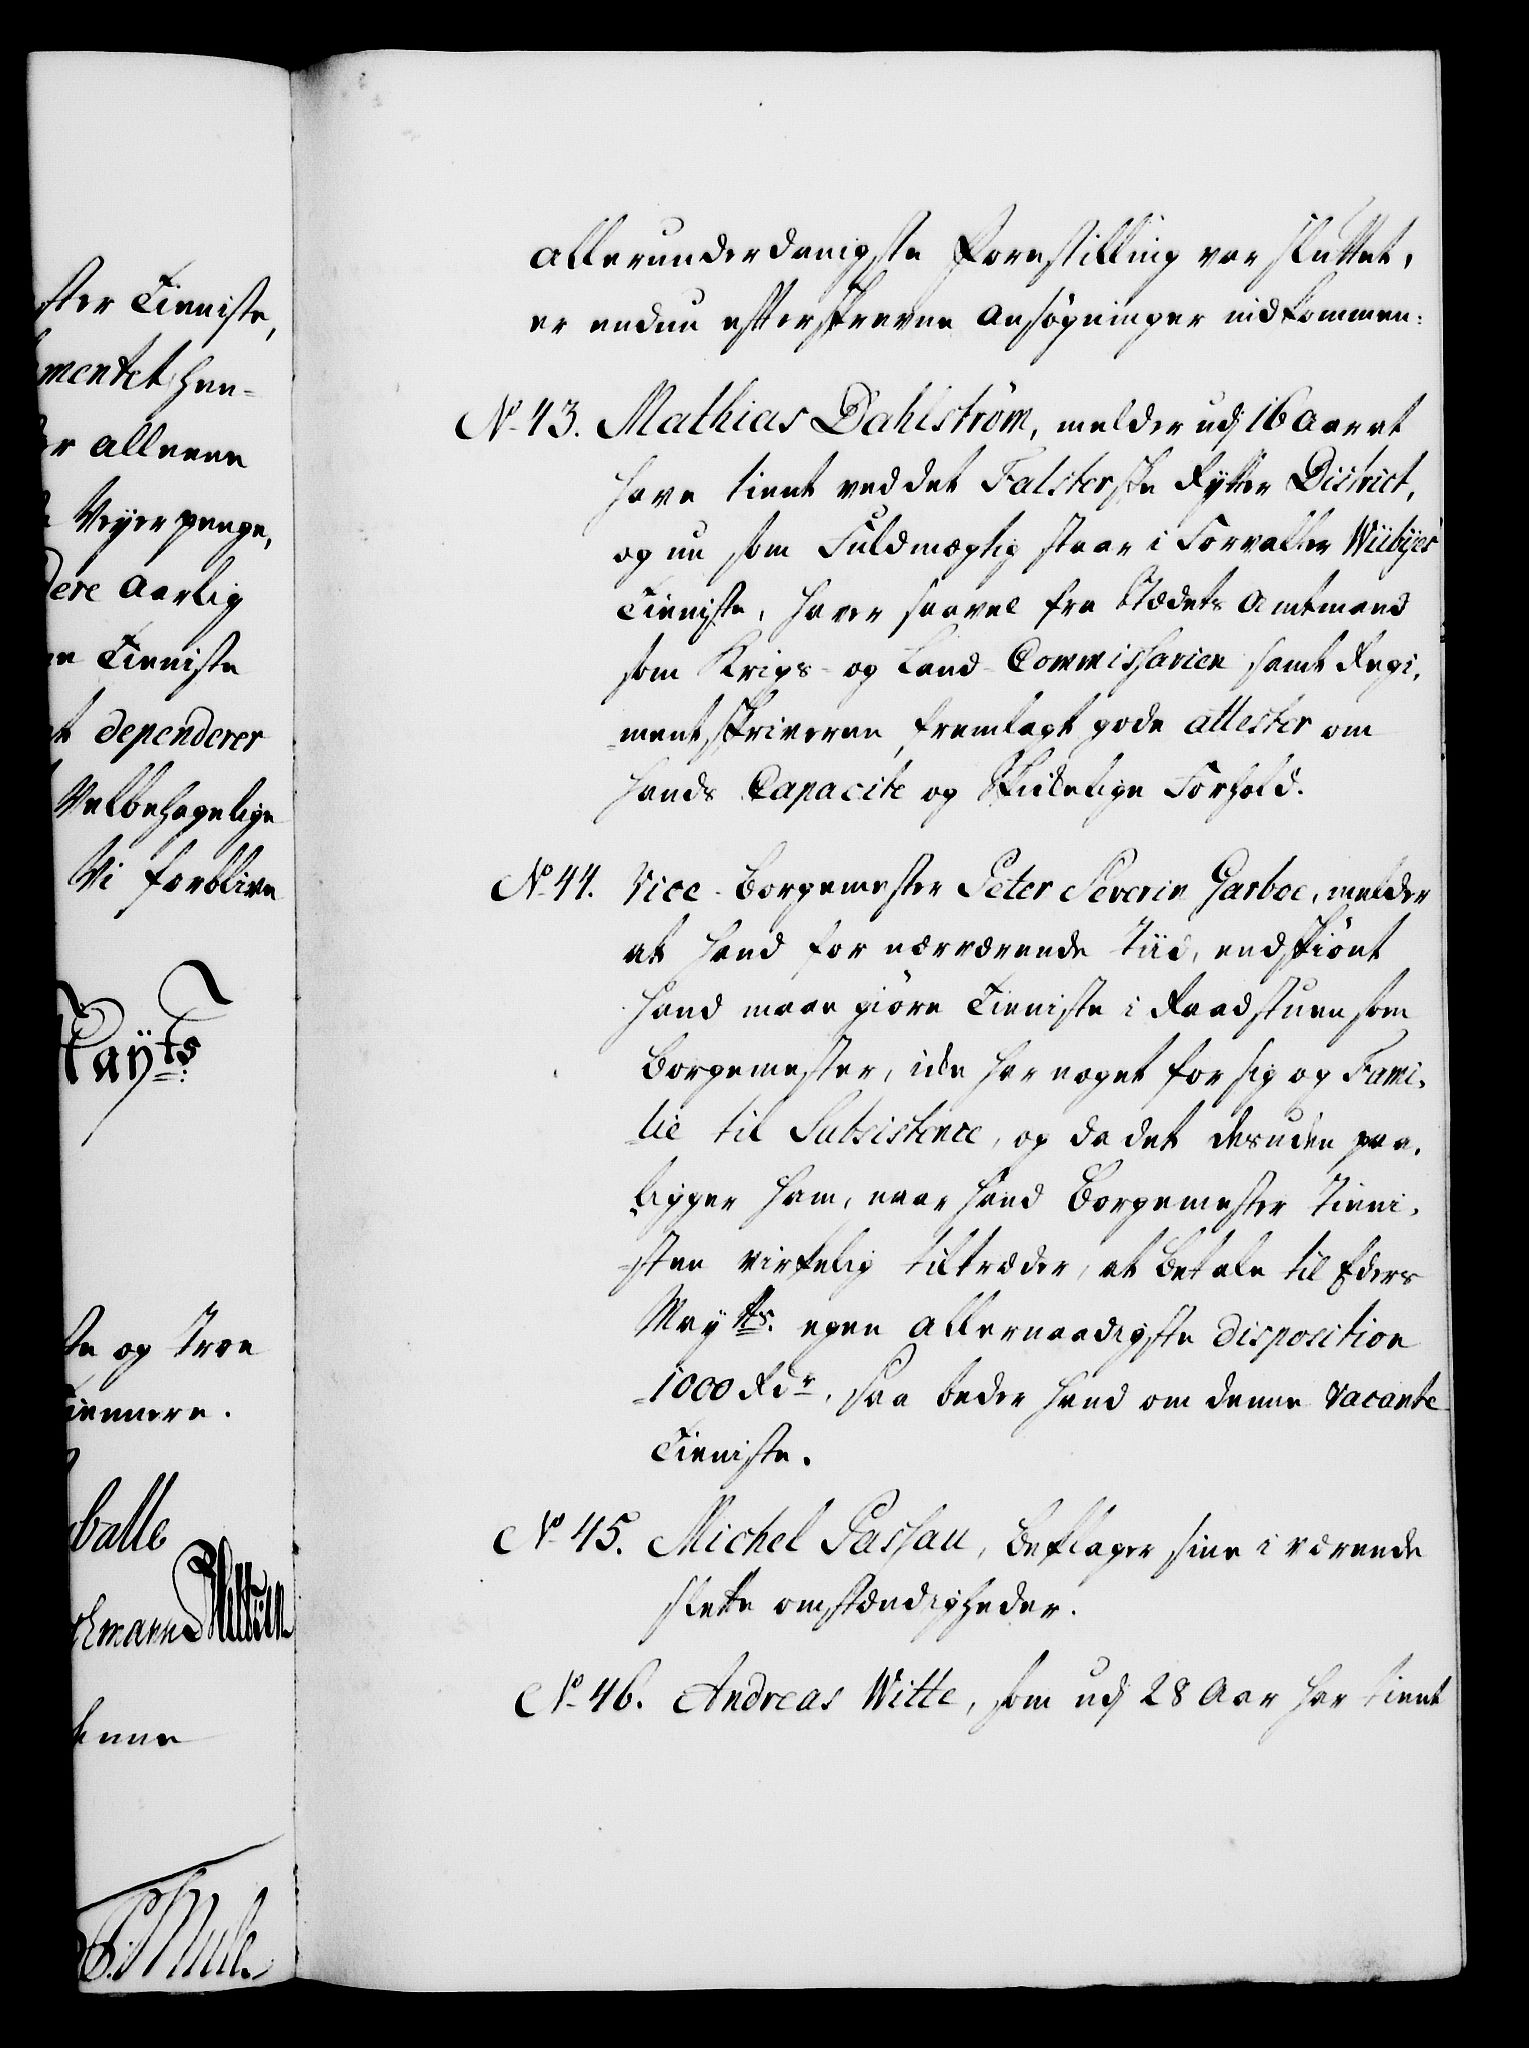 ster Tieniste,
mentet hen-
er alleene
Veyer penge,
dere aarlig
Tieniste
dependerer
Velbehagelige
Vi forblive
Mayts:
og troe
tiennere.
balle
chmann Witten
Mule
allerunderdanigste forestilling var sluttet,
er endnu efterskrevne ansøgninger indkommen:
No 43. Mathias Dahlström, melder udj 16 aar at
have tient ved det Falsterske Rytter District,
og nu som Fuldmægtig staar i Forvalter Wiibÿes
Tieniste, haver saavel fra Stædets Amtmand
som Krigs- og Land-Commissarien samt Regi-
mentskriveren fremlagt gode attester om
hands Capacite og skikelige Forhold.
No 44. Vice-Borgemester Peter Severin Garboe, melder
at hand for nærværende tiid, endskiönt
hand maae giöre Tieniste i Raadstuen som
Borgemester, icke har noget for sig og Fami-
lie til Subsistence, og da det desuden paa-
ligger ham, naar hand Borgemester Tieni-
sten virkelig tiltræder, at betale til Eders
Mayts: egen allernaadigste disposition
1000 Rdr, saa beder hand om denne vacante
Tieniste.
No 45. Michel Passau, beklager sine i værende
slette omstændigheder.
No 46. Andreas Witte, som udj 28 Aar har tient